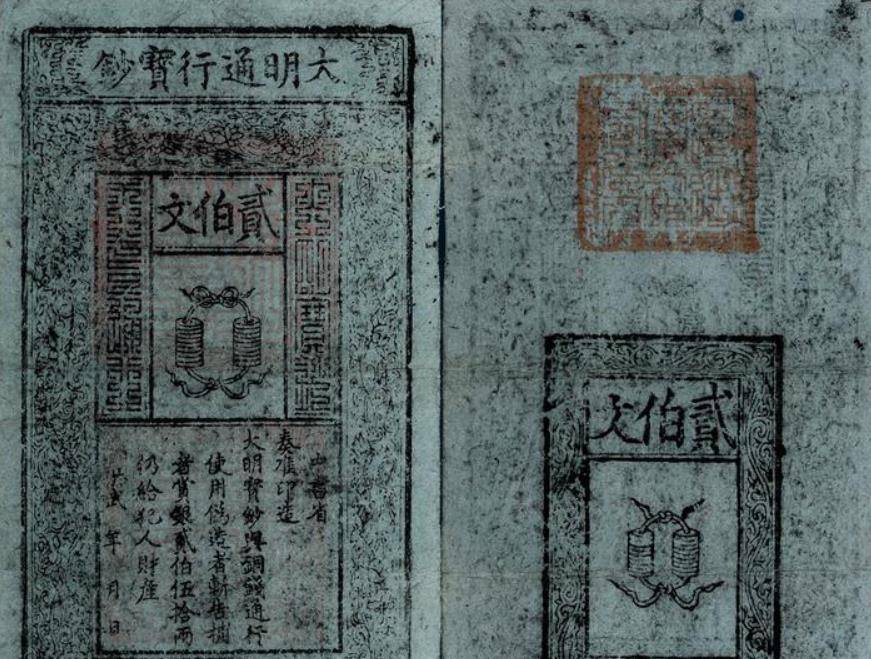 大明通行寶鈔
貳伯文
中書省
奏准印造
大明寶鈔與銅錢通行
使用偽造者斬告捕
者賞銀貳伯伍拾兩
仍給犯人財產
洪武 年 月 日
貳伯文